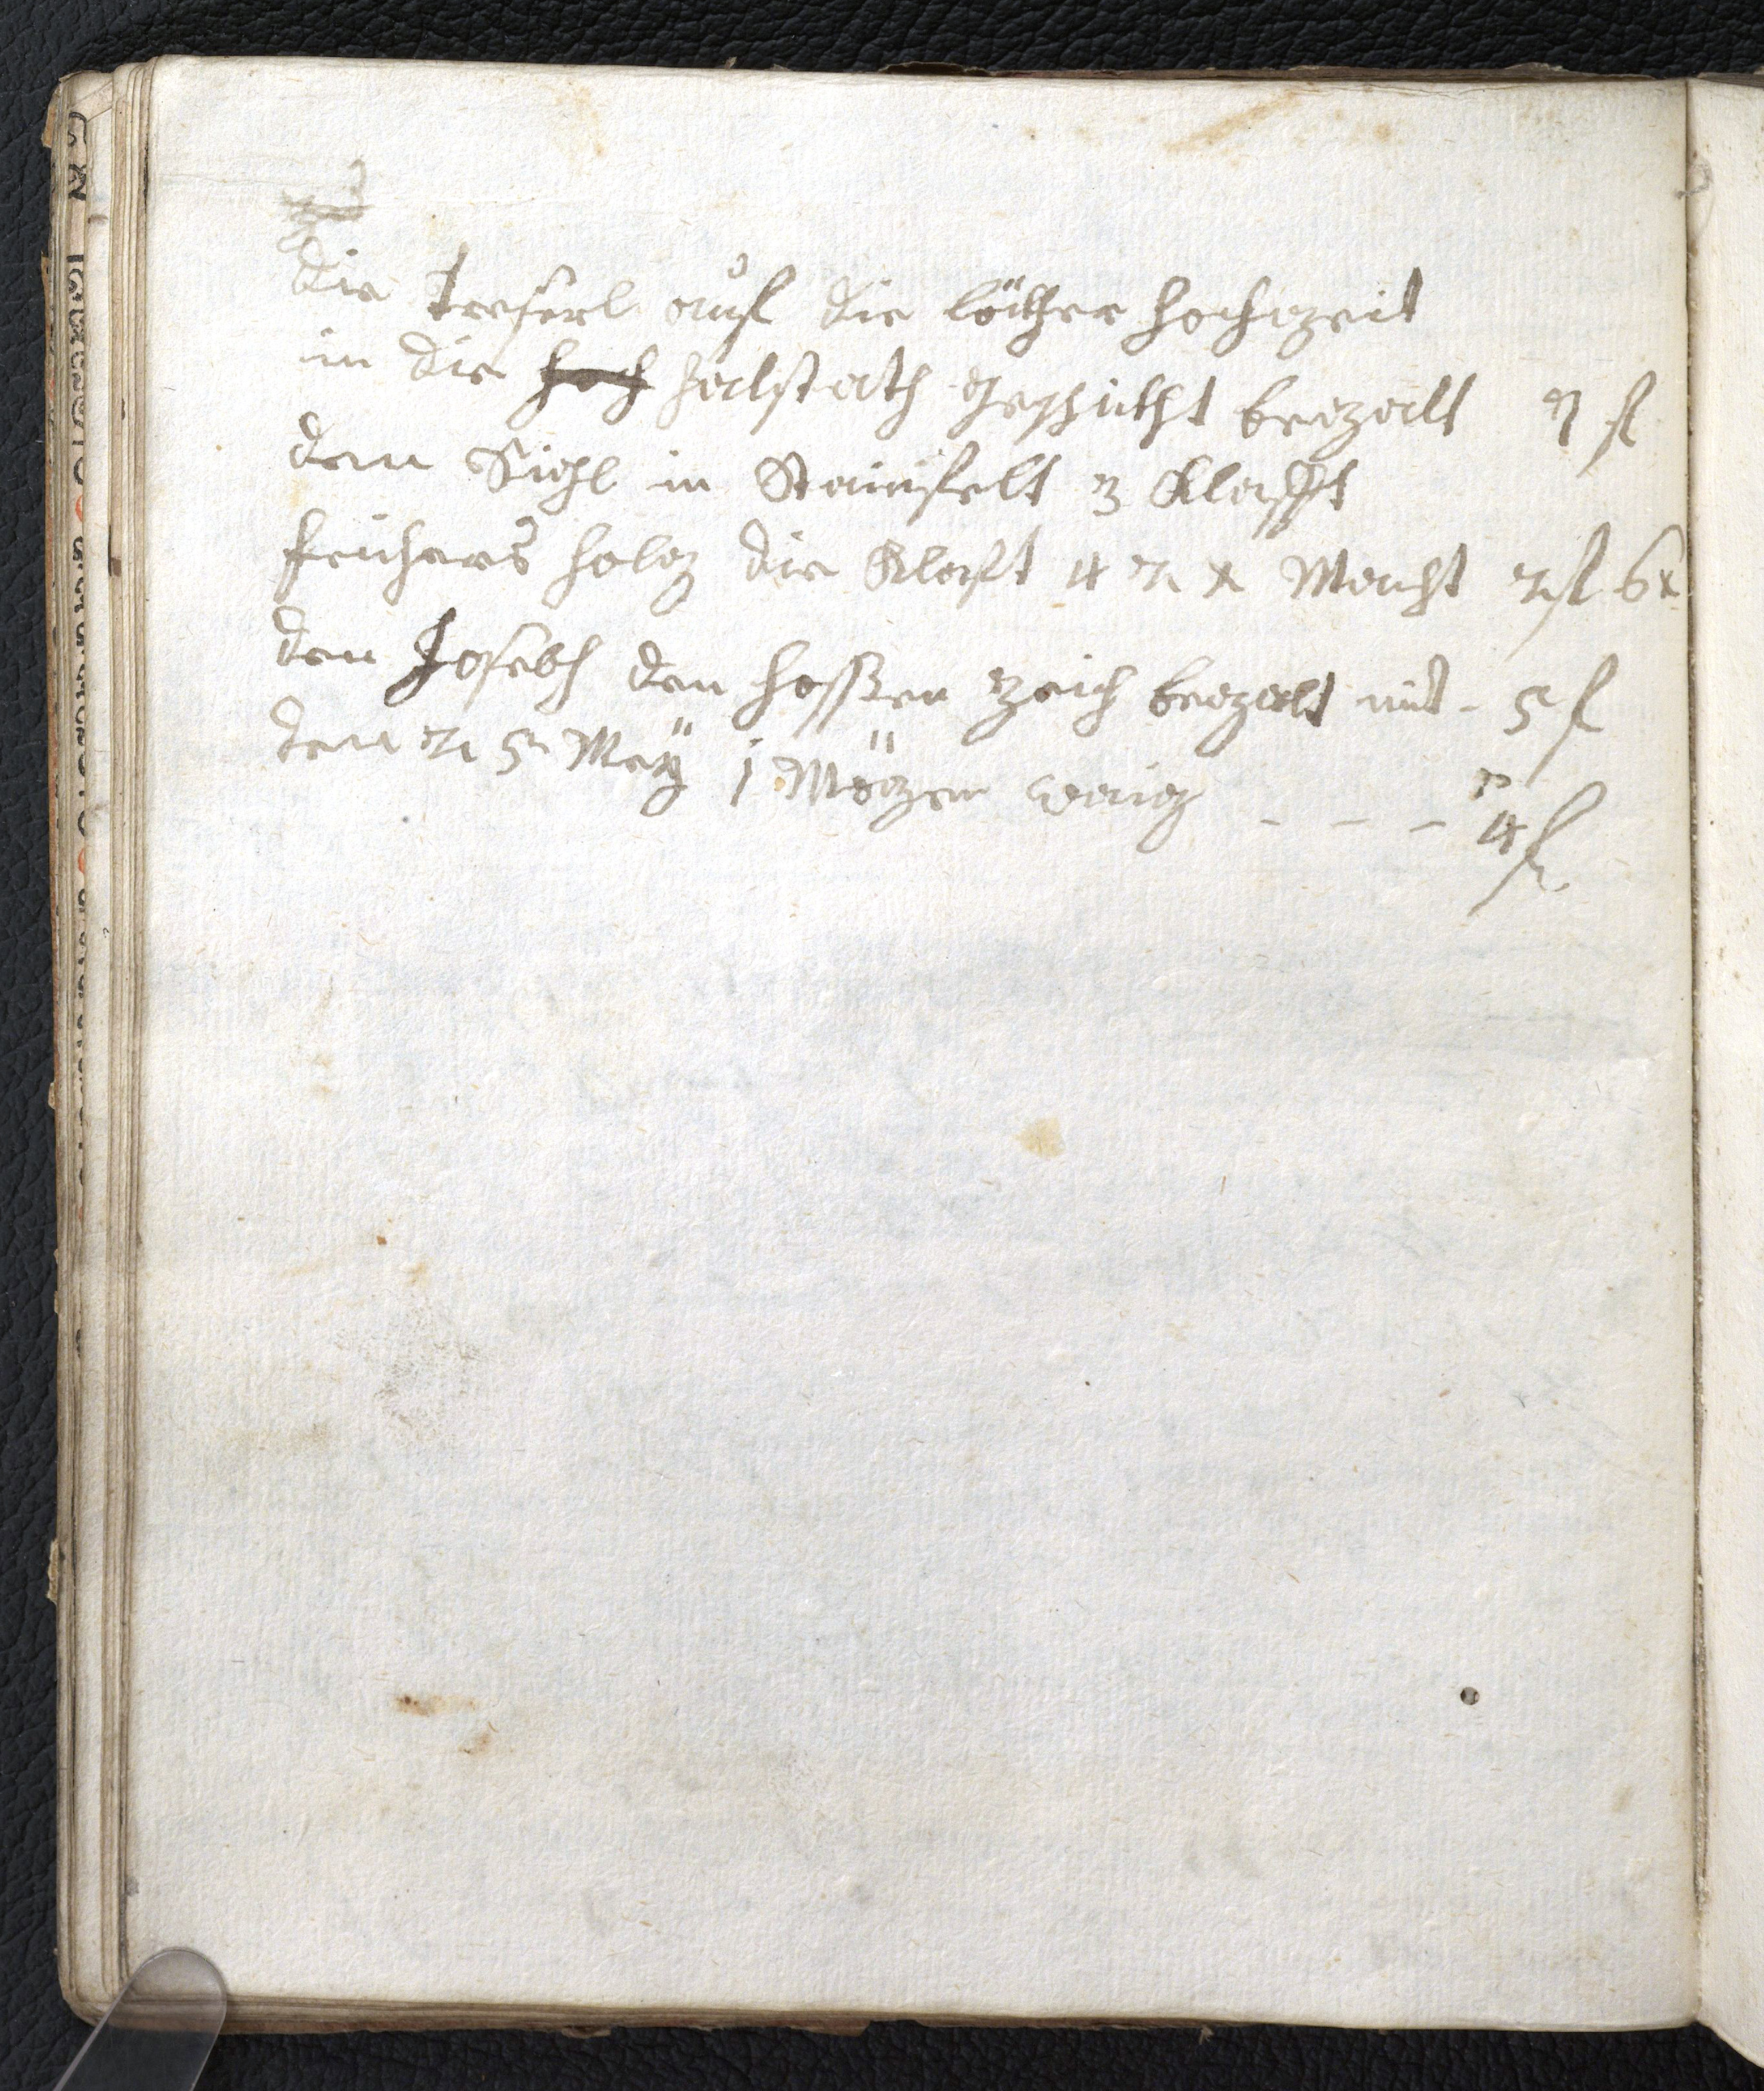 die Treserl auf die löther hochzeit
in die halstath geschickht bezalt 1 fl
dem Siegl in Stainfelt 3 Klafft
feichans holcz die Klaft 42 x Macht 2 fl 6 x
den Josebh den hossen zeich bezalt mit - 5 fl
den 25 Meÿ 1 Möczen waicz - - - 4 fl